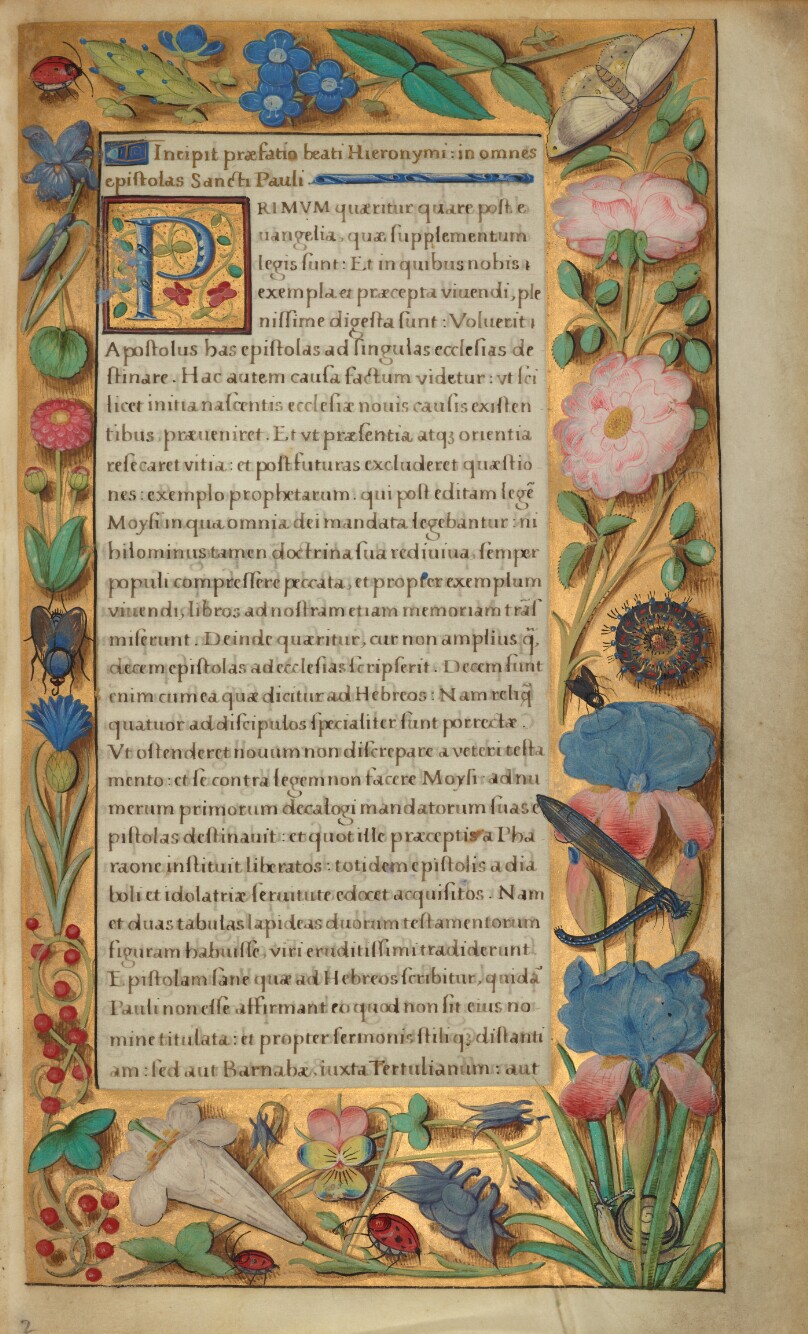 Incipit præfatio beati Hieronymi : in omnes
epistolas Sancti Pauli .
PRIMVM quæritur quare post e
uangelia , quæ supplementum
legis sunt : Et in quibus nobis
exempla et præcepta viuendi , ple
nissime digesta sunt : Voluerit
Apostolus has epistolas ad singulas ecclesias de
stinare . Hac autem causa factum videtur : vt sci
licet initia nascentis ecclesiæ nouis causis existen
tibus præueniret . Et vt præsentia atqꝫ orientia
resecaret vitia : et post futuras excluderet quæstio
nes : exemplo prophetarum . qui post editam legẽ
Moysi in qua omnia dei mandata legebantur : ni
hilominus tamen doctrina sua rediuiua , semper
populi compressere peccata , et propter exemplum
viuendi , libros ad nostram etiam memoriam trãs
miserunt . Deinde quæritur , cur non amplius q̃,
decem epistolas ad ecclesias scripserit . Decem sunt
enim cum ea quæ dicitur ad Hebreos : Nam reliq̃
quatuor ad discipulos specialiter sunt porrectæ .
Vt ostenderet nouum non discrepare a veteri testa
mento : et se contra legem non facere Moysi : ad nu
merum primorum decalogi mandatorum suas e
pistolas destinauit : et quot ille præceptis a Pha
raone instituit liberatos : totidem epistolis a dia
boli et idolatriæ seruitute edocet acquisitos . Nam
et duas tabulas lapideas duorum testamentorum
figuram habuisse , viri eruditissimi tradiderunt .
Epistolam sane quæ ad Hebreos scribitur , quidã
Pauli non esse affirmant eo quod non sit eius no
mine titulata : et propter sermonis stiliqꝫ distanti
am : sed aut Barnabæ , iuxta Tertulianum : aut
2